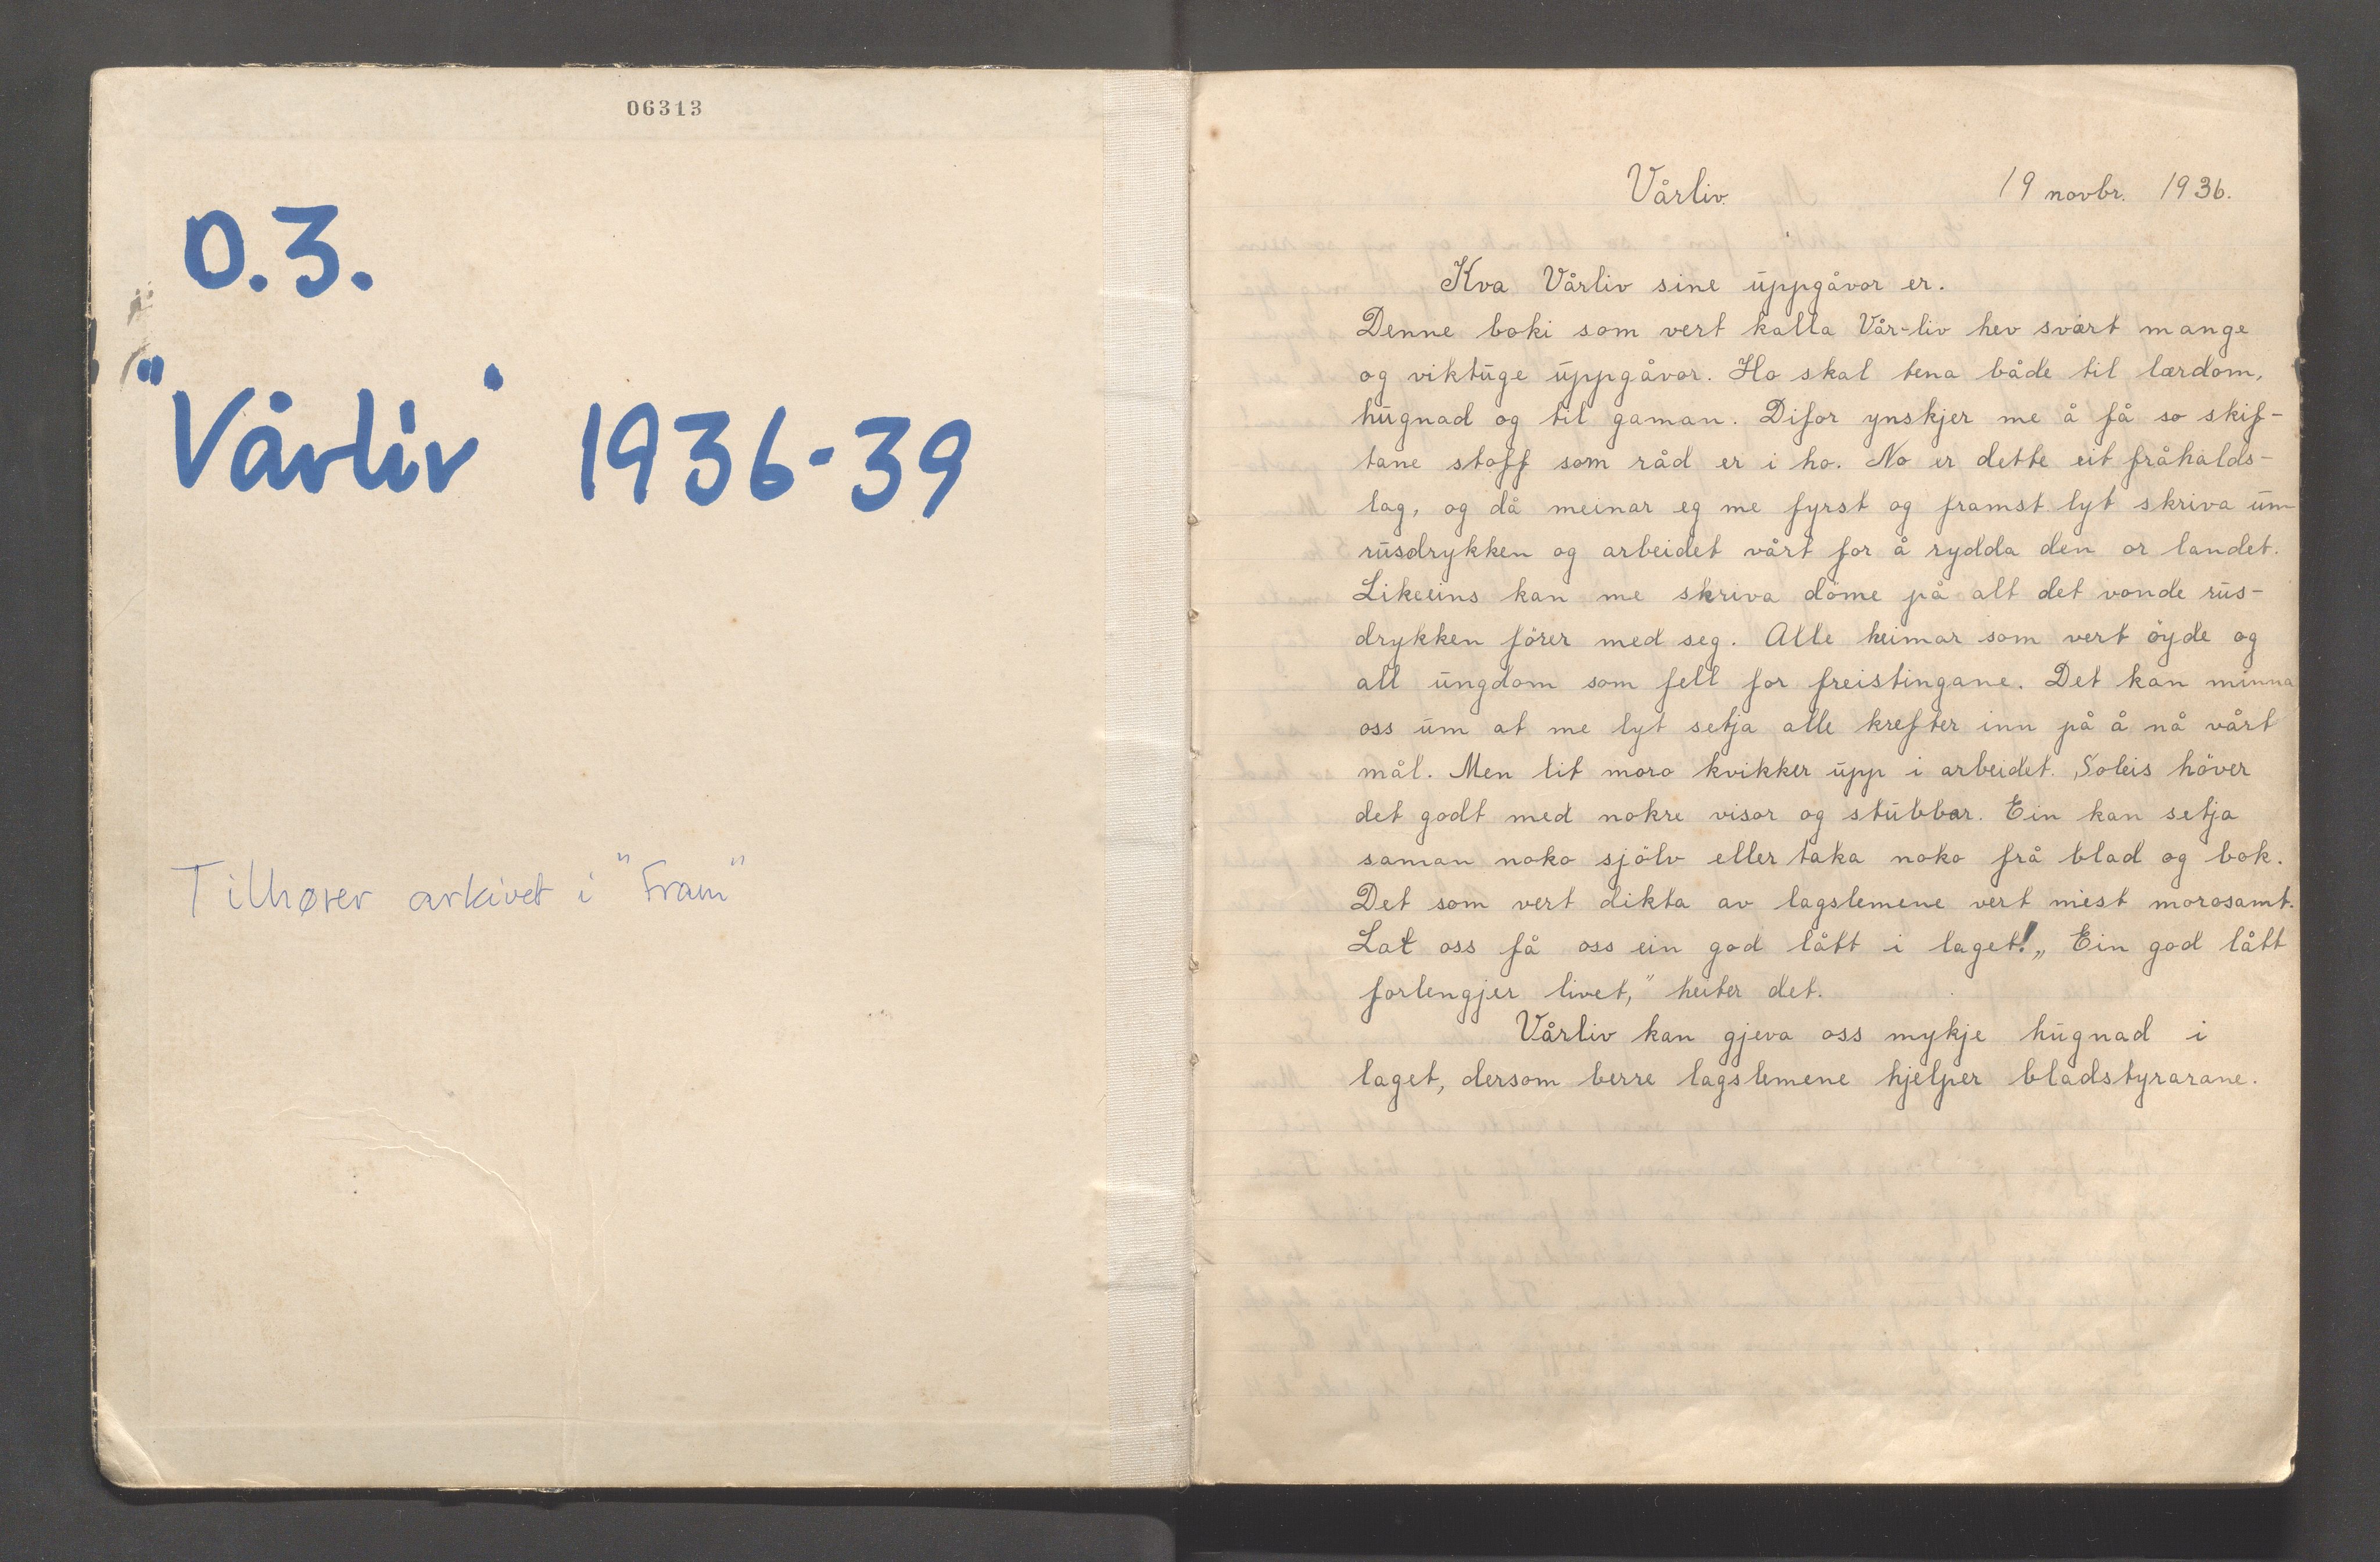 06313
O.3.
"Vårliv" 1936-39
Tilhører arkivet i "Fram"
Vårliv. 19 novbr. 1936.
Kva Vårliv sine uppgåvor er.
Denne boki som vert kalla Vår-liv hev svært mange
og viktuge uppgåvor. Ho skal tena både til lærdom,
hugnad og til gaman. Difor ynskjer me å få so skif-
tane stoff som råd er i ho. No er dette eit fråhalds-
lag, og då meinar eg me fyrst og framst lyt skriva um
rusdrykken og arbeidet vårt for å rydda den or landet.
Likeeins kan me skriva döme på alt det vonde rus-
drykken förer med seg. Alle heimar som vert öyde og
all ungdom som fell for freistingane. Det kan minna
oss um at me lyt setja alle krefter inn på å nå vårt
mål. Men lit moro kvikker upp i arbeidet. Soleis höver
det godt med nokre visor og stubbar. Ein kan setja
saman noko sjölv eller taka noko frå blad og bok.
Det som vert dikta av lagslemene vert mest morosamt.
Lat oss få oss ein god lått i laget! „Ein god lått
forlengjer livet," heiter det.
Vårliv kan gjeva oss mykje hugnad i
laget, dersom berre lagslemene hjelper bladstyrarane.